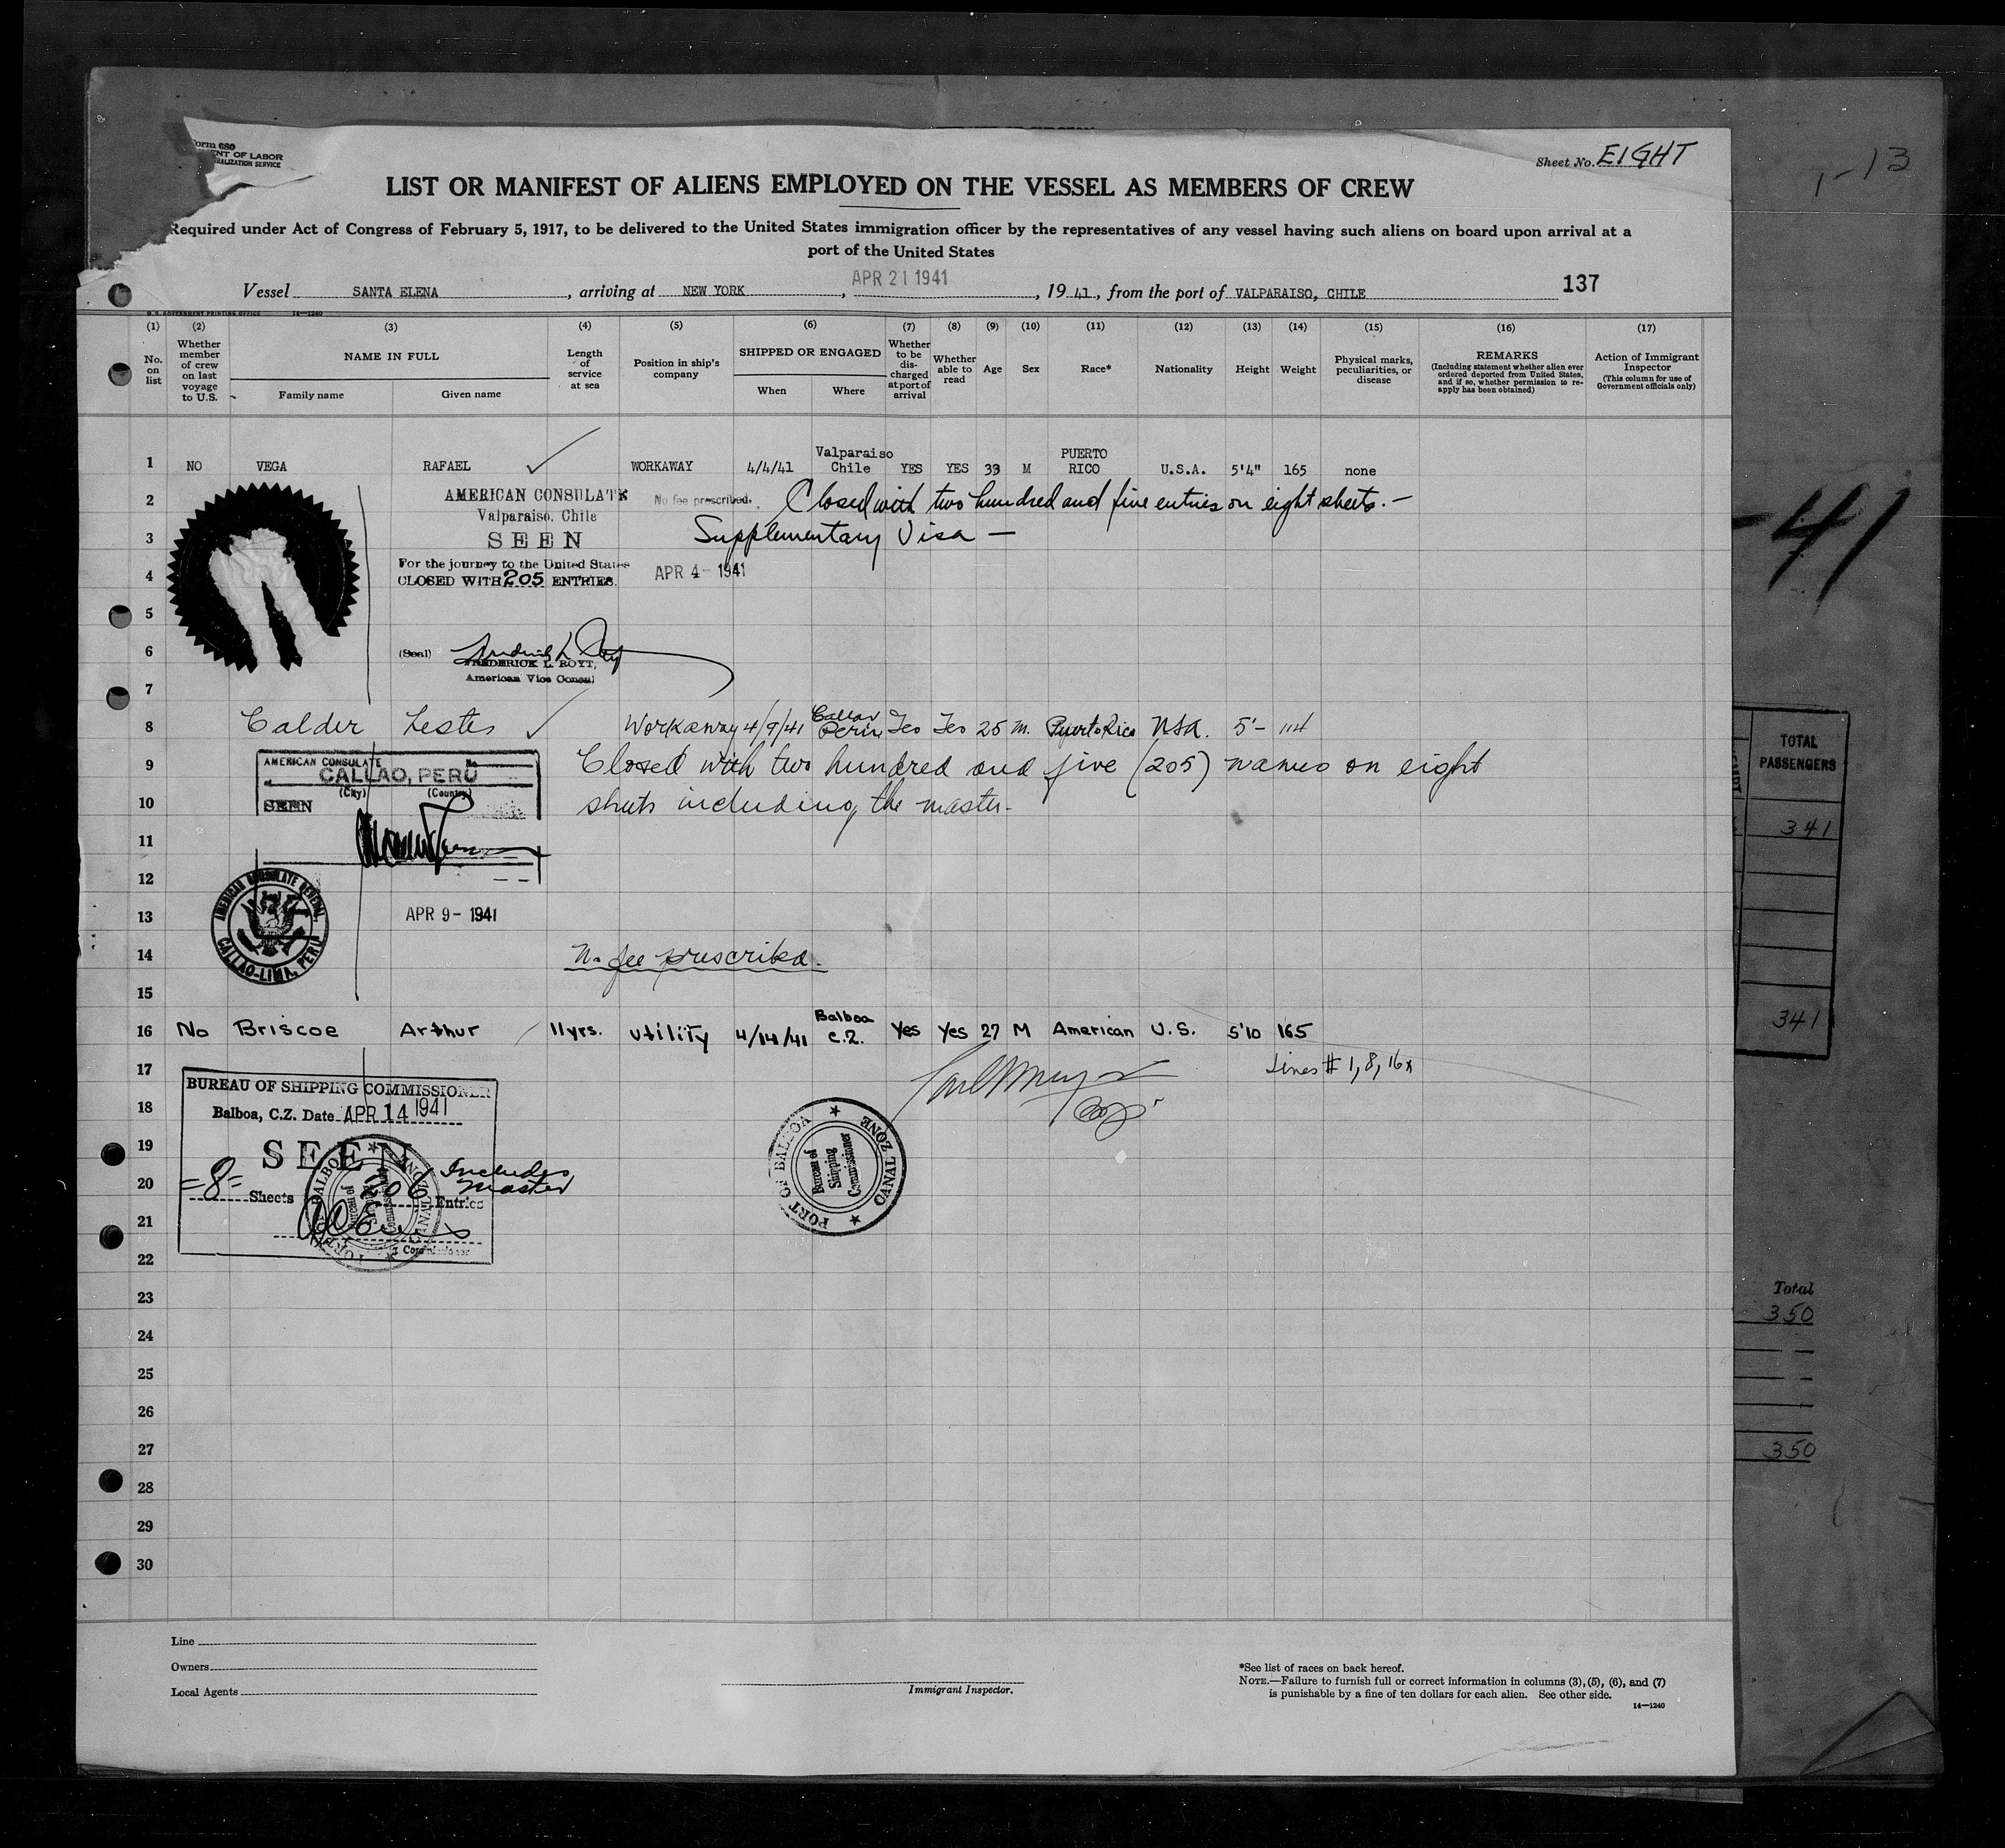 Form 680
ENT OF LABOR
RALIZATION SERVICE
Sheet No. EIGHT
1-13
LIST OR MANIFEST OF ALIENS EMPLOYED ON THE VESSEL AS MEMBERS OF CREW
Required under Act of Congress of February 5, 1917, to be delivered to the United States immigration officer by the representatives of any vessel having such aliens on board upon arrival at a
port of the United States
Vessel SANTA ELENA, arriving at NEW YORK, APR 21 1941, 19 41, from the port of VALPARAISO, CHILE 137
U. S. GOVERNMENT PRINTING OFFICE 14—1240
(1) (2) (3) (4) (5) (6) (7) (8) (9) (10) (11) (12) (13) (14) (15) (16) (17)
No. on list
Whether member of crew on last voyage to U.S.
NAME IN FULL
Family name Given name
Length of service at sea
Position in ship's company
SHIPPED OR ENGAGED
When Where
Whether to be discharged at port of arrival
Whether able to read
Age
Sex
Race*
Nationality
Height
Weight
Physical marks, peculiarities, or disease
REMARKS
(Including statement whether alien ever ordered deported from United States, and if so, whether permission to reapply has been obtained)
Action of Immigrant Inspector
(This column for use of Government officials only)
1 NO VEGA RAFAEL WORKAWAY 4/4/41 Valparaiso Chile YES YES 33 M PUERTO RICO U.S.A. 5'4" 165 none
2 AMERICAN CONSULATE No fee prescribed. Closed with two hundred and five entries on eight sheets.—
Valparaiso, Chile
3 SEEN Supplementary Visa —
For the journey to the United States
4 CLOSED WITH 205 ENTRIES. APR 4- 1941
-41
5
6 (Seal)
FREDERICK L. ROYT,
American Vice Consul
7
8 Calder Lester Workaway 4/9/41 Callao Peru Yes Yes 25 M. Puerto Rico USA. 5'- 114
9 AMERICAN CONSULATE No Closed with two hundred and five (205) names on eight
CALLAO, PERU
(City) (Country)
10 SEEN sheets including the master.
11
12
AMERICAN CONSULATE GENERAL
CALLAO-LIMA, PERU
13 APR 9- 1941
14 No fee prescribed.
15
16 No Briscoe Arthur 11yrs. Utility 4/14/41 Balboa C.Z. Yes Yes 27 M American U.S. 5'10 165
17 Lines # 1, 8, 16x
BUREAU OF SHIPPING COMMISSIONER
18 Balboa, C.Z. Date APR 14 1941
19 SEEN
20 -8- Sheets 206 Entries Includes Master
21
22
PORT OF BALBOA
CANAL ZONE
Bureau of
Shipping
Commissioner
23
24
25
26
27
28
29
30
TOTAL
PASSENGERS
341
341
Total
350
350
Line
Owners
Local Agents
Immigrant Inspector.
*See list of races on back hereof.
NOTE.—Failure to furnish full or correct information in columns (3), (5), (6), and (7)
is punishable by a fine of ten dollars for each alien. See other side.
14—1240